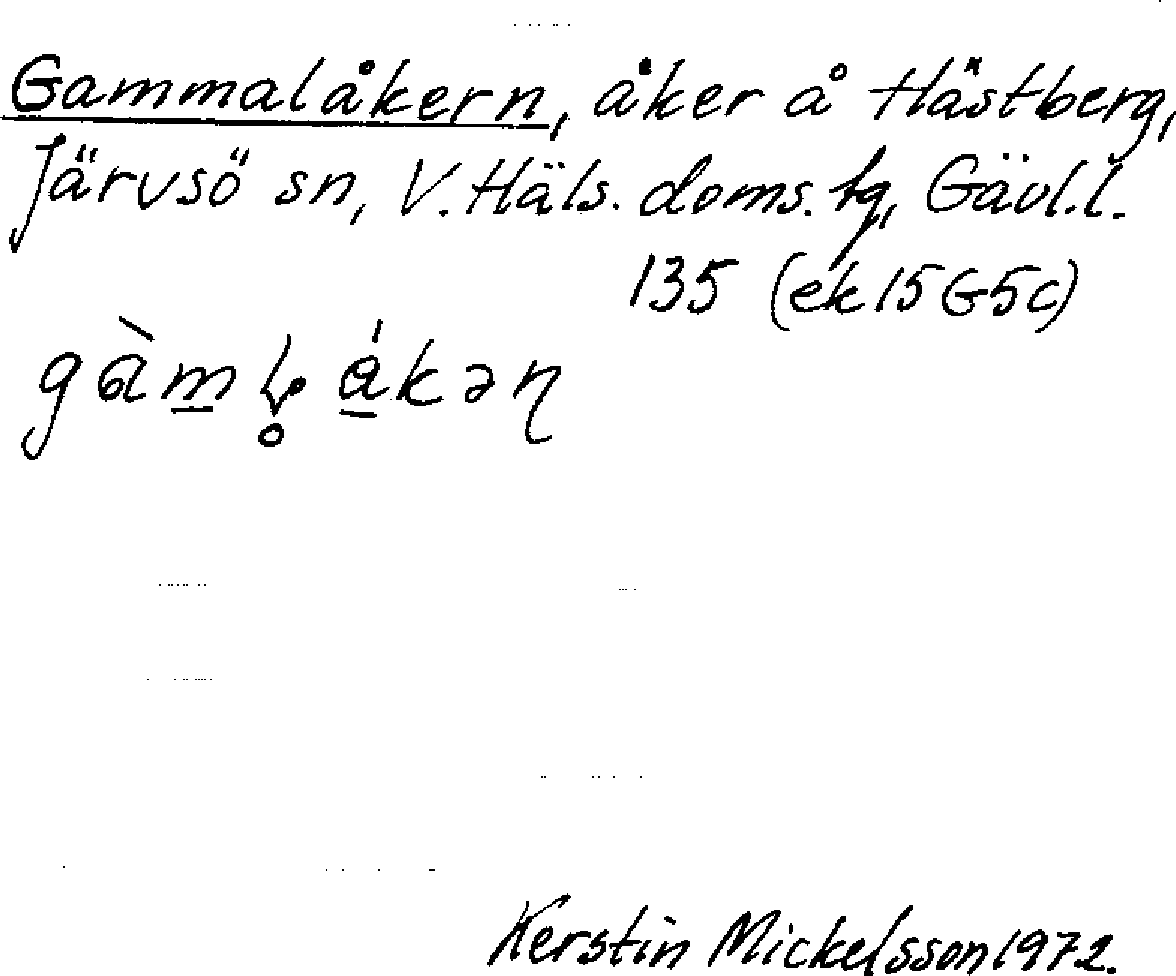 Gammalåkern, åker å Hästberg,
Järvsö sn, V. Häls. doms. tg, Gävl. l.
135 (ek 15G5c)
Kerstin Mickelsson 1972.